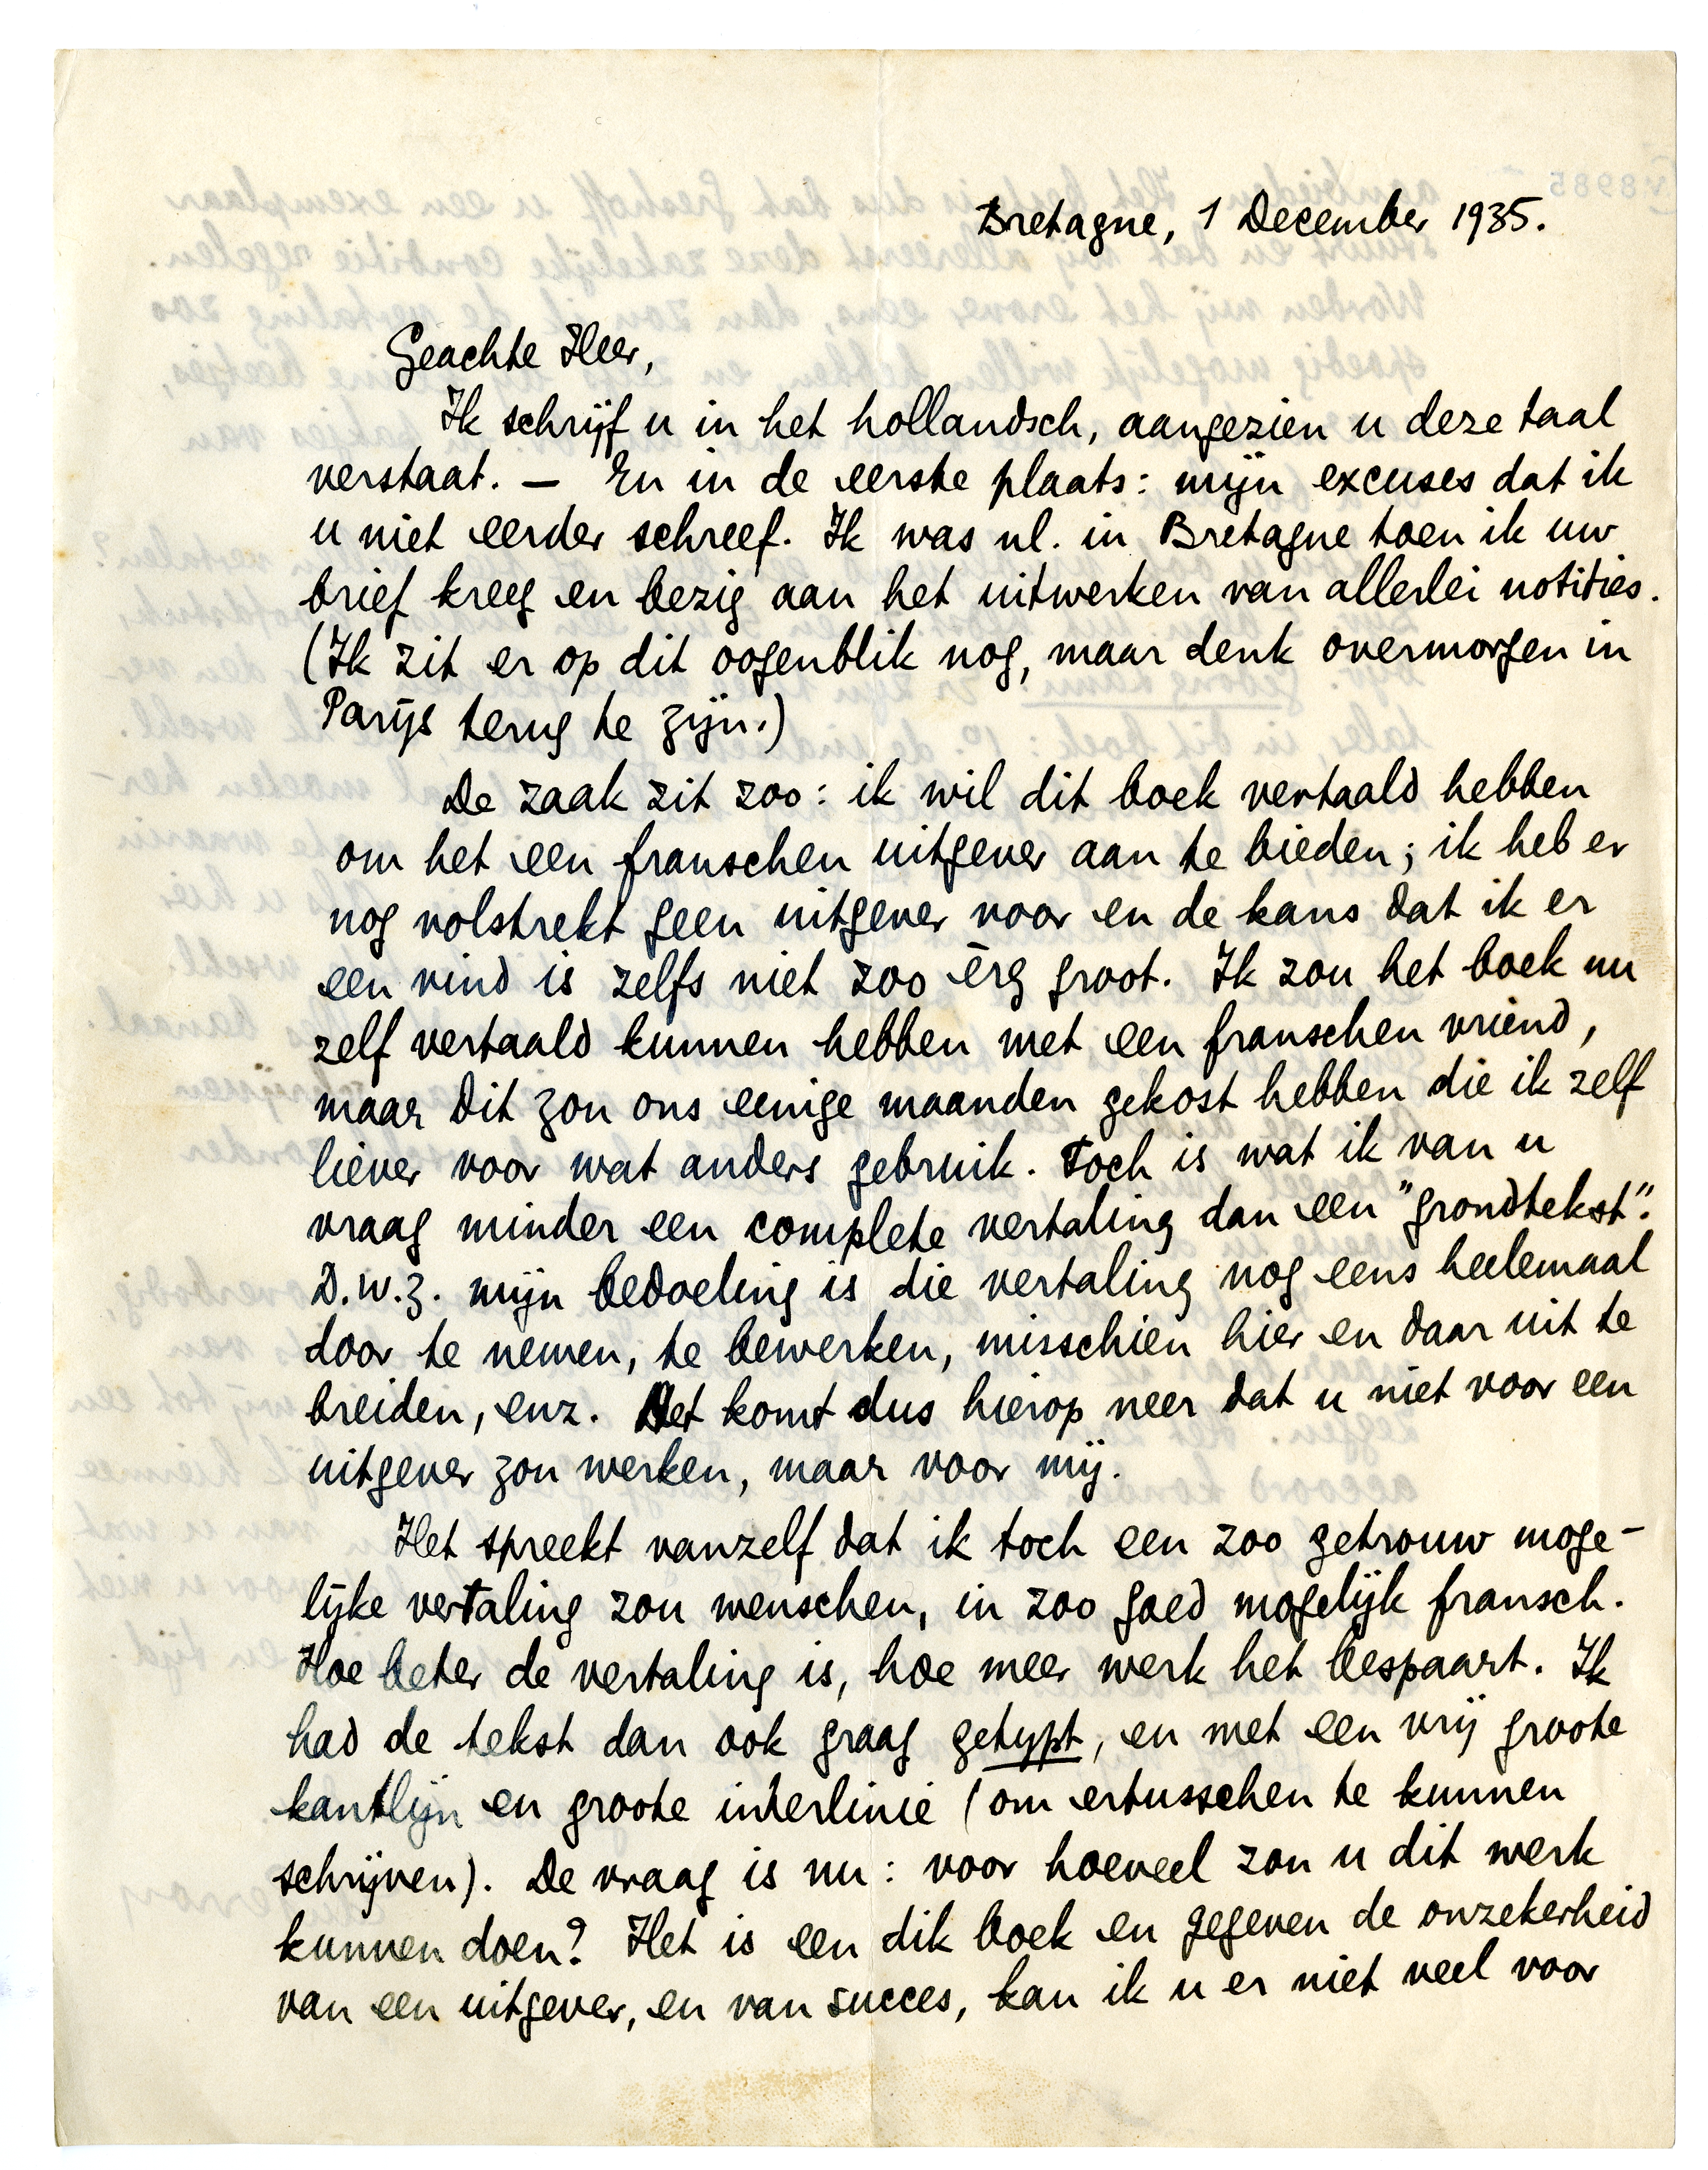 Bretagne, 1 December 1935.
Geachte Heer,
Ik schrijf u in het hollandsch, aangezien u deze taal
verstaat. — En in de eerste plaats: mijn excuses dat ik
u niet eerder schreef. Ik was nl. in Bretagne toen ik uw
brief kreeg en bezig aan het uitwerken van allerlei notities.
(Ik zit er op dit oogenblik nog, maar denk overmorgen in
Parijs terug te zijn.)
De zaak zit zoo: ik wil dit boek vertaald hebben
om het een franschen uitgever aan te bieden; ik heb er
nog volstrekt geen uitgever voor en de kans dat ik er
een vind is zelfs niet zoo èrg groot. Ik zou het boek nu
zelf vertaald kunnen hebben met een franschen vriend,
maar dit zou ons eenige maanden gekost hebben die ik zelf
liever voor wat anders gebruik. Toch is wat ik van u
vraag minder een complete vertaling dan een "grondtekst".
D.w.z. mijn bedoeling is die vertaling nog eens heelemaal
door te nemen, te bewerken, misschien hier en daar uit te
breiden, enz. Het komt dus hierop neer dat u niet voor een
uitgever zou werken, maar voor mij.
Het spreekt vanzelf dat ik toch een zoo getrouw moge-
lijke vertaling zou wenschen, in zoo goed mogelijk fransch.
Hoe beter de vertaling is, hoe meer werk het bespaart. Ik
had de tekst dan ook graag getypt, en met een vrij groote
kantlijn en groote interlinie (om ertusschen te kunnen
schrijven). De vraag is nu: voor hoeveel zou u dit werk
kunnen doen? Het is een dik boek en gegeven de onzekerheid
van een uitgever, en van succes, kan ik u er niet veel voor